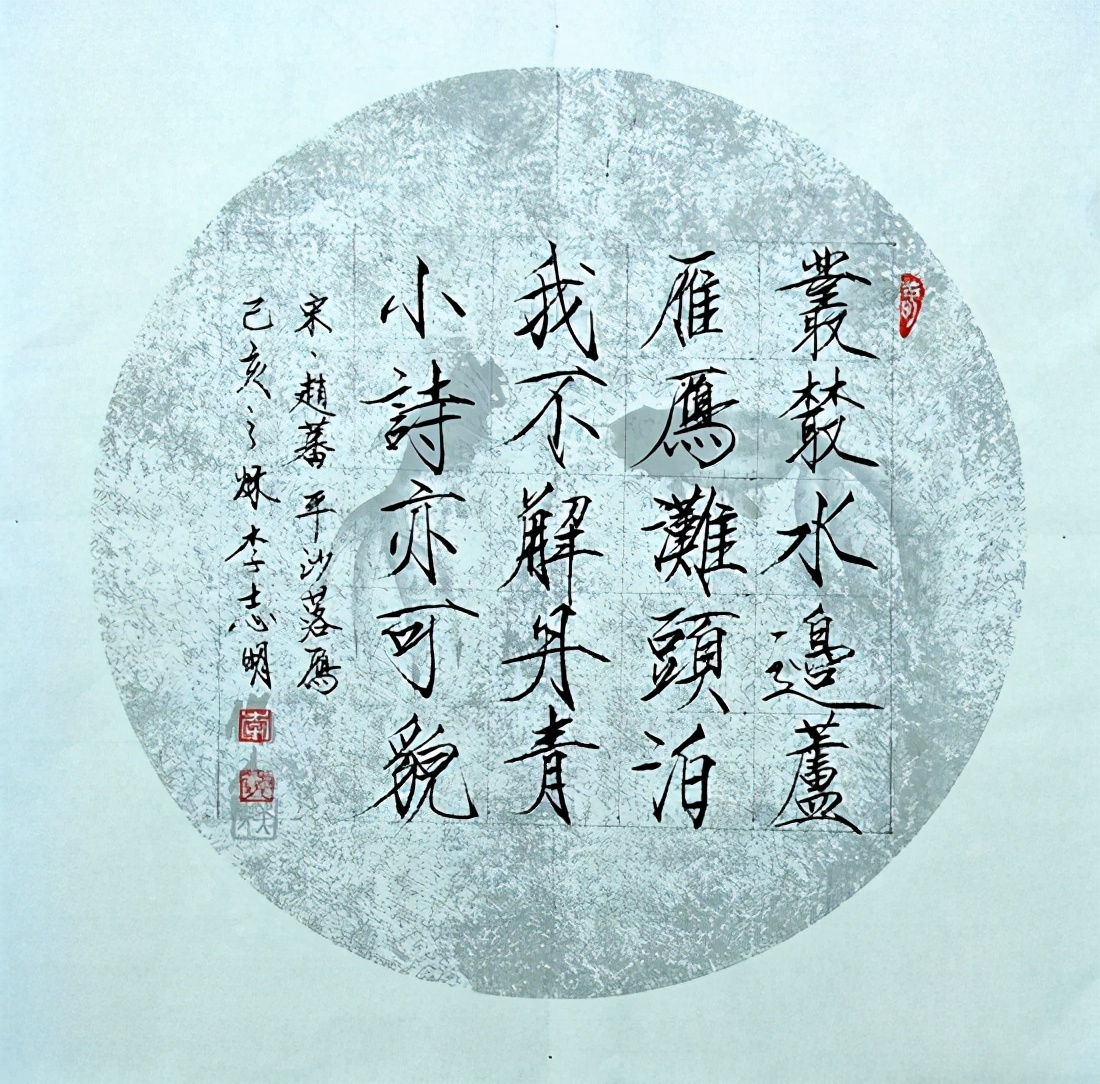 叢藂水邊蘆
雁鴈灘頭泊
我不解丹青
小詩亦可貌
宋、趙蕃平沙落鴈
己亥之秌李志明